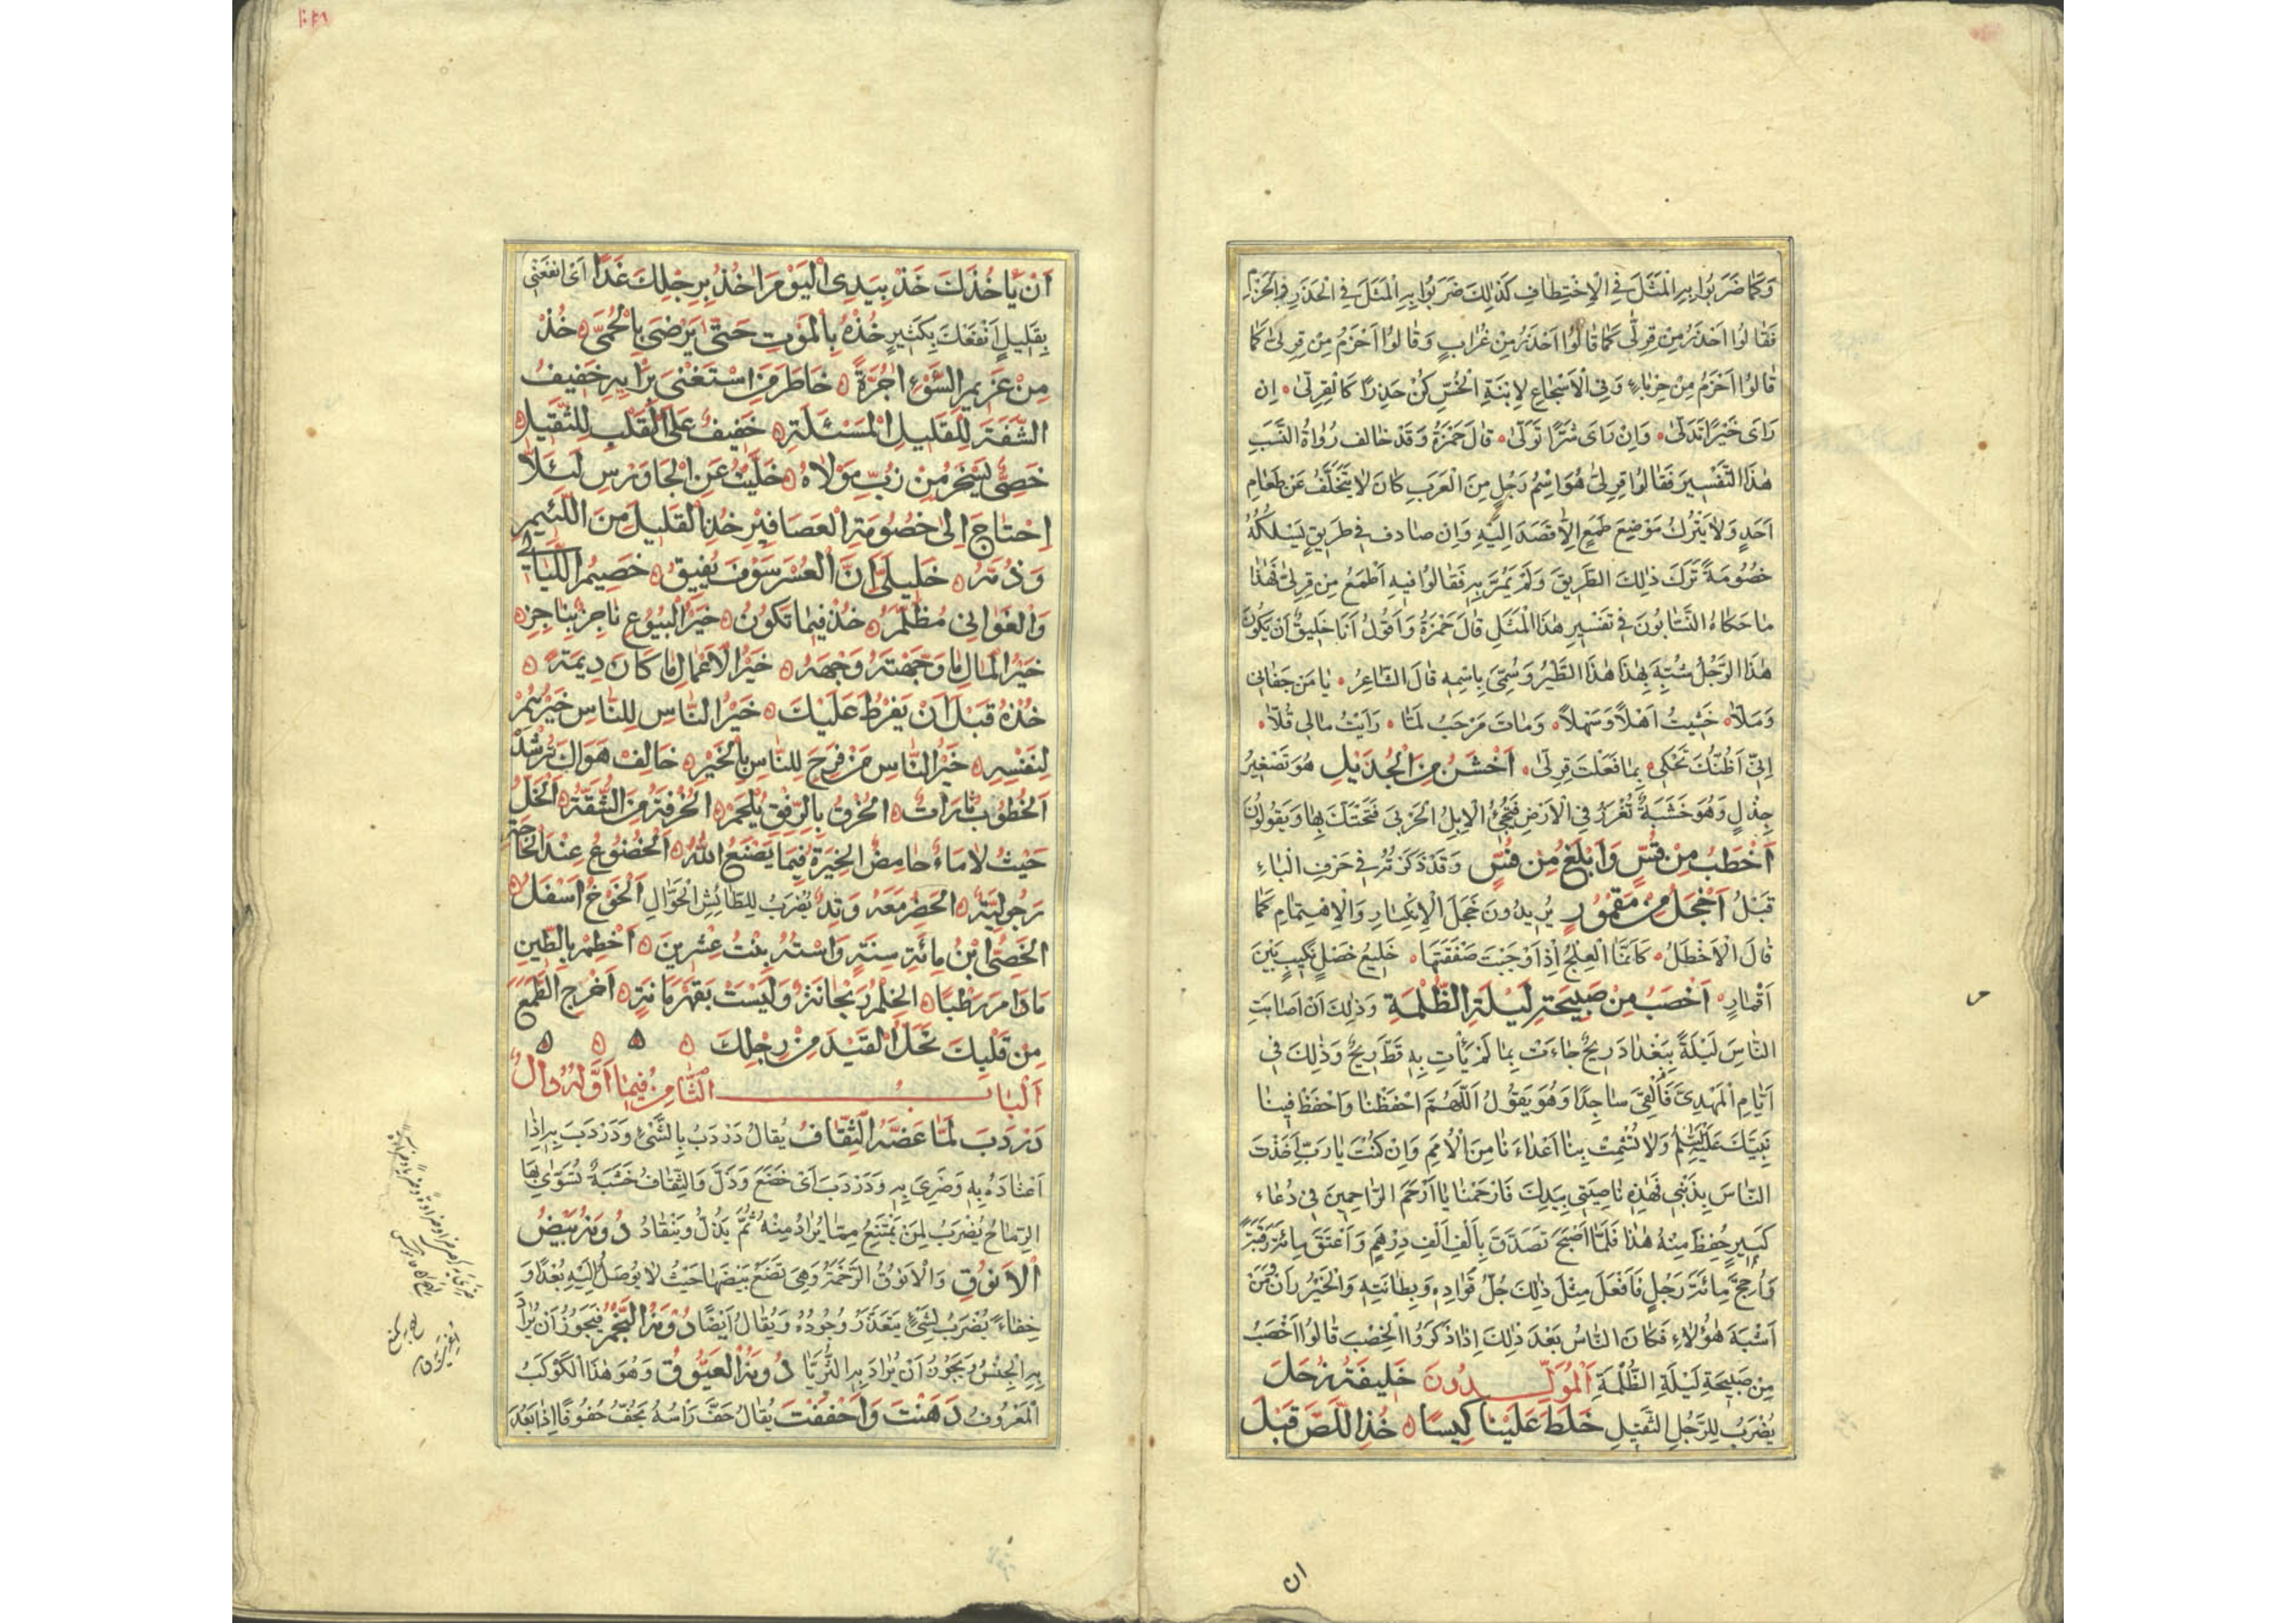 وَكَمَا ضَرَبُوا بِهِ الْمَثَلَ فِي الْاِخْتِطَافِ كَذٰلِكَ ضَرَبُوا بِهِ الْمَثَلَ فِي الْحَذَرِ وَالْحَزْمِ
فَقَالُوا اَحْذَرُ مِنْ قِرِلَّى كَمَا قَالُوا اَحْذَرُ مِنْ غُرَابٍ وَقَالُوا اَحْزَمُ مِنْ قِرِلَّى كَمَا
قَالُوا اَحْزَمُ مِنْ حِرْبَاءٍ وَفِي الْاَسْجَاعِ لِابْنَةِ الْخُسِّ كُنْ حَذِرًا كَالْقِرِلَّى اِنْ
رَاَى خَيْرًا تَدَلَّى وَاِنْ رَاَى شَرًّا تَوَلَّى قَالَ حَمْزَةُ وَقَدْ خَالَفَ رُوَاةُ النَّسَبِ
هٰذَا التَّفْسِيرَ فَقَالُوا قِرِلَّى هُوَ اسْمُ رَجُلٍ مِنَ الْعَرَبِ كَانَ لَا يَتَخَلَّفُ عَنْ طَعَامِ
اَحَدٍ وَلَا يَتْرُكُ مَوْضِعَ طَمَعٍ اِلَّا قَصَدَ اِلَيْهِ وَاِنْ صَادَفَ فِي طَرِيقٍ يَسْلُكُهُ
خُصُومَةً تَرَكَ ذٰلِكَ الطَّرِيقَ وَلَمْ يَمُرَّ بِهِ فَقَالُوا فِيهِ اَطْمَعُ مِنْ قِرِلَّى فَهٰذَا
مَا حَكَاهُ النَّسَّابُونَ فِي تَفْسِيرِ هٰذَا الْمَثَلِ قَالَ حَمْزَةُ وَاَقُولُ اَنَا خَلِيقٌ اَنْ يَكُونَ
هٰذَا الرَّجُلُ شُبِّهَ بِهٰذَا هٰذَا الطَّيْرِ وَسُمِّيَ بِاسْمِهِ قَالَ الشَّاعِرُ يَا مَنْ جَفَانِي
وَمَلَّا خَسِيتُ اَهْلًا وَسَهْلًا وَمَاتَ مَرْحَبُ لَمَّا رَاَيْتُ مَالِي قَلَّا
اِنِّي اَظُنُّكَ تَحْكِي بِمَا فَعَلْتَ قِرِلَّى اَخْشَنُ مِنَ الْجُذَيْلِ هُوَ تَصْغِيرُ
جِذْلٍ وَهُوَ خَشَبَةٌ تُغْرَزُ فِي الْاَرْضِ فَتَجِيْءُ الْاِبِلُ الْجَرْبَى فَتَحْتَكُّ بِهَا وَيَقُولُونَ
اَخْطَبُ مِنْ قُسٍّ وَاَبْلَغُ مِنْ قُسٍّ وَقَدْ ذَكَرْتُهُ فِي حَرْفِ الْبَاءِ
قَبْلُ اَخْجَلُ مِنْ مَقْمُورٍ يُرِيدُونَ خَجَلَ الْاِنْكِسَارِ وَالْاِهْتِمَامِ كَمَا
قَالَ الْاَخْطَلُ كَاَنَّمَا الْعِلْجُ اِذْ اَوْجَبْتَ صَفْقَتَهَا خَلِيعُ خَصْلٍ نَكِيبٍ بَيْنَ
اَقْمَارِ اَخْصَبُ مِنْ صَبِيحَةِ لَيْلَةِ الظُّلْمَةِ وَذٰلِكَ اَنْ اَصَابَتِ
النَّاسَ لَيْلَةً بِبَغْدَادَ رِيحٌ جَاءَتْ بِمَا لَمْ يَأْتِ بِهِ قَطُّ رِيحٌ وَذٰلِكَ فِي
اَيَّامِ الْمَهْدِيِّ فَاُلْفِيَ سَاجِدًا وَهُوَ يَقُولُ اَللّٰهُمَّ احْفَظْنَا وَاحْفَظْ فِينَا
نَبِيَّكَ عَلَيْهِ السَّلَامُ وَلَا تُشْمِتْ بِنَا اَعْدَاءَنَا مِنَ الْاُمَمِ وَاِنْ كُنْتَ يَا رَبِّ اَخَذْتَ
النَّاسَ بِذَنْبِي فَهٰذِهِ نَاصِيَتِي بِيَدِكَ فَارْحَمْنَا يَا اَرْحَمَ الرَّاحِمِينَ فِي دُعَاءٍ
كَبِيرٍ حُفِظَ مِنْهُ هٰذَا فَلَمَّا اَصْبَحَ تَصَدَّقَ بِاَلْفِ اَلْفِ دِرْهَمٍ وَاَعْتَقَ مِائَةَ رَقَبَةٍ
وَاَحَجَّ مِائَةَ رَجُلٍ فَافْعَلَ مِثْلَ ذٰلِكَ جُلُّ قُوَّادِهِ وَبِطَانَتِهِ وَالْخَيْزُرَانُ وَمَنْ
اَشْبَهَ هٰؤُلَاءِ فَكَانَ النَّاسُ بَعْدَ ذٰلِكَ اِذَا ذَكَرُوا الْخِصْبَ قَالُوا اَخْصَبُ
مِنْ صَبِيحَةِ لَيْلَةِ الظُّلْمَةِ اَلْمُوَلَّدُونَ خَلِيفَةُ زُحَلَ
يُضْرَبُ لِلرَّجُلِ الثَّقِيلِ خَلَطَ عَلَيْنَا كِيسًا خُذِ اللِّصَّ قَبْلَ
ان
اَنْ يَاْخُذَكَ خُذْ بِيَدِي الْيَوْمَ اٰخُذْ بِرِجْلِكَ غَدًا اَيْ اِنْفَعْنِي
بِقَلِيلٍ اَنْفَعْكَ بِكَثِيرٍ خُذْهُ بِالْمَوْتِ حَتّٰى يَرْضٰى بِالْحُمّٰى خُذْ
مِنْ غَرِيمِ السَّوْءِ اُجْرَةً خَاطَرَ مَنِ اسْتَغْنٰى بِرَاْيِهِ خَفِيفُ
الشَّفَةِ لِلْقَلِيلِ الْمَسْئَلَةِ خَفِيفٌ عَلَى الْقَلْبِ لِلثَّقِيلِ
خَصِيٌّ يَسْخَرُ مِنْ زُبِّ مَوْلَاهُ خَلَّيْتُ عَنِ الْجَاوَرْسِ لِئَلَّا
اِحْتَاجَ اِلٰى خُصُومَةِ الْعَصَافِيرِ خُذِ الْقَلِيلَ مِنَ اللَّئِيمِ
وَذُمَّهُ خَلِيلَيَّ اِنَّ الْعُسْرَ سَوْفَ يُفِيقُ خَصِيمُ اللَّيَالِي
وَالْغَوَانِي مُظَلَّمُ خُذْ فِيمَا تَكُونُ خَيْرُ الْبُيُوعِ نَاجِزٌ بِنَاجِزٍ
خَيْرُ الْمَالِ مَا وَجَّهْتَهُ وَجْهَهُ خَيْرُ الْاَعْمَالِ مَا كَانَ دِيمَةً
خُذْهُ قَبْلَ اَنْ يَفْرُطَ عَلَيْكَ خَيْرُ النَّاسِ لِلنَّاسِ خَيْرُهُمْ
لِنَفْسِهِ خَيْرُ النَّاسِ مَنْ فَرِحَ لِلنَّاسِ بِالْخَيْرِ خَالِفْ هَوَاكَ تَرْشُدْ
اَلْخُطُوبُ تَارَاتٌ اَلْخَرْقُ بِالرِّفْقِ يُلْحَمُ اَلْخِرْقَةُ مِنَ الشُّقَّةِ اَلْخَلُّ
حَيْثُ لَا مَاءَ حَامِضٌ الْخِيَرَةُ فِيمَا يَصْنَعُ اللّٰهُ اَلْخُضُوعُ عِنْدَ الْحَاجَةِ
رُجُولِيَّةٌ الْخَضِرُ مَعَهُ وَتِدٌ يُضْرَبُ لِلطَّائِشِ الْجَوَّالِ اَلْخَوْخُ اَسْفَلُ
الْخَصِيُّ ابْنُ مِائَةِ سَنَةٍ وَاسْتُهُ بِنْتُ عِشْرِينَ اُخْطُمْ بِالطِّينِ
مَا دَامَ رَطْبًا الْخِلْمُ رَيْحَانَةٌ وَلَيْسَتْ بِقَهْرَمَانَةٍ اَخْرِجِ الطَّمَعَ
مِنْ قَلْبِكَ تَحُلَّ الْقَيْدَ مِنْ رِجْلِكَ
اَلْبَابُ الثَّامِنُ فِيمَا اَوَّلُهُ دَالٌ
دَرْدَبَ لَمَّا عَضَّهُ الثِّقَافُ يُقَالُ دَرْدَبَ بِالشَّيْءِ وَدَرْدَبَ بِهِ اِذَا
اعْتَادَهُ بِهِ وَضَرِيَ بِهِ وَدَرْدَبَ اَيْ خَضَعَ وَذَلَّ وَالثِّقَافُ خَشَبَةٌ تُسَوّٰى بِهَا
الرِّمَاحُ يُضْرَبُ لِمَنْ يَمْتَنِعُ مِمَّا يُرَادُ مِنْهُ ثُمَّ يَذِلُّ وَيَنْقَادُ دُونَهُ بَيْضُ
الْاَنُوقِ وَالْاَنُوقُ الرَّخَمَةُ وَهِيَ تَضَعُ بَيْضَهَا حَيْثُ لَا يُوصَلُ اِلَيْهِ بُعْدًا وَ
خِفَاءً يُضْرَبُ لِشَيْءٍ يَتَعَذَّرُ وُجُودُهُ وَيُقَالُ اَيْضًا دُونَهُ النَّجْمُ فَيَجُوزُ اَنْ يُرَادَ
بِهِ الْجِنْسُ وَيَجُوزُ اَنْ يُرَادَ بِهِ الثُّرَيَّا دُونَهُ الْعَيُّوقُ وَهُوَ هٰذَا الْكَوْكَبُ
الْمَعْرُوفُ دَهَنْتَ وَاَحْفَفْتَ يُقَالُ حَفَّ رَاْسُهُ يَحُفُّ حُفُوفًا اِذَا بَعُدَ